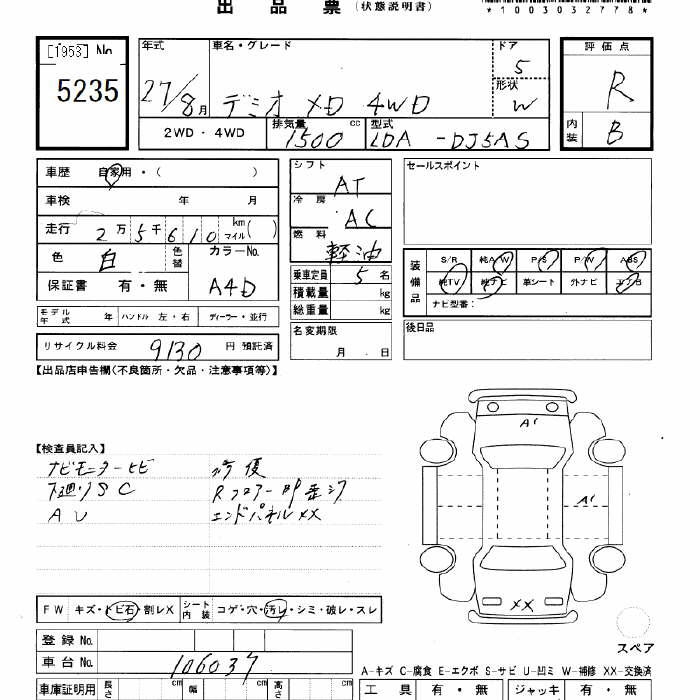 出品票 (状態説明書)
*1003032778*
[1953] No.
5235
年式
27/8月
車名・グレード
デミオ XD 4WD
ドア
5
形状
W
2WD・4WD
排気量
1500 cc
型式
LDA -DJ5AS
評価点
R
内装
B
車歴 自家用・( )
車検 年 月
走行 2万5千610 km マイル( )
色 白 色替
カラーNo.
A4D
保証書 有・無
モデル年式 年 ハンドル 左・右 ディーラー・並行
リサイクル料金 9130 円 預託済
シフト
AT
冷房
AC
燃料
軽油
乗車定員 5 名
積載量 kg
総重量 kg
名変期限
月 日
セールスポイント
装備品
S/R 純A/W P/S P/W ABS
純TV 純ナビ 革シート 外ナビ エアB
ナビ型番:
後日品
【出品店申告欄(不良箇所・欠品・注意事項等)】
【検査員記入】
ナビモニターヒビ
下廻りSC
AU
エンドパネルXX
A1
A1
XX
スペア
FW キズ・トビ石・割レX シート内装 コゲ・穴・汚レ・シミ・破レ・スレ
登録 No.
車台 No. 106037
A-キズ C-腐食 E-エクボ S-サビ U-凹ミ W-補修 XX-交換済
車庫証明用 長さ cm 幅 cm 高さ cm
工具 有・無 ジャッキ 有・無